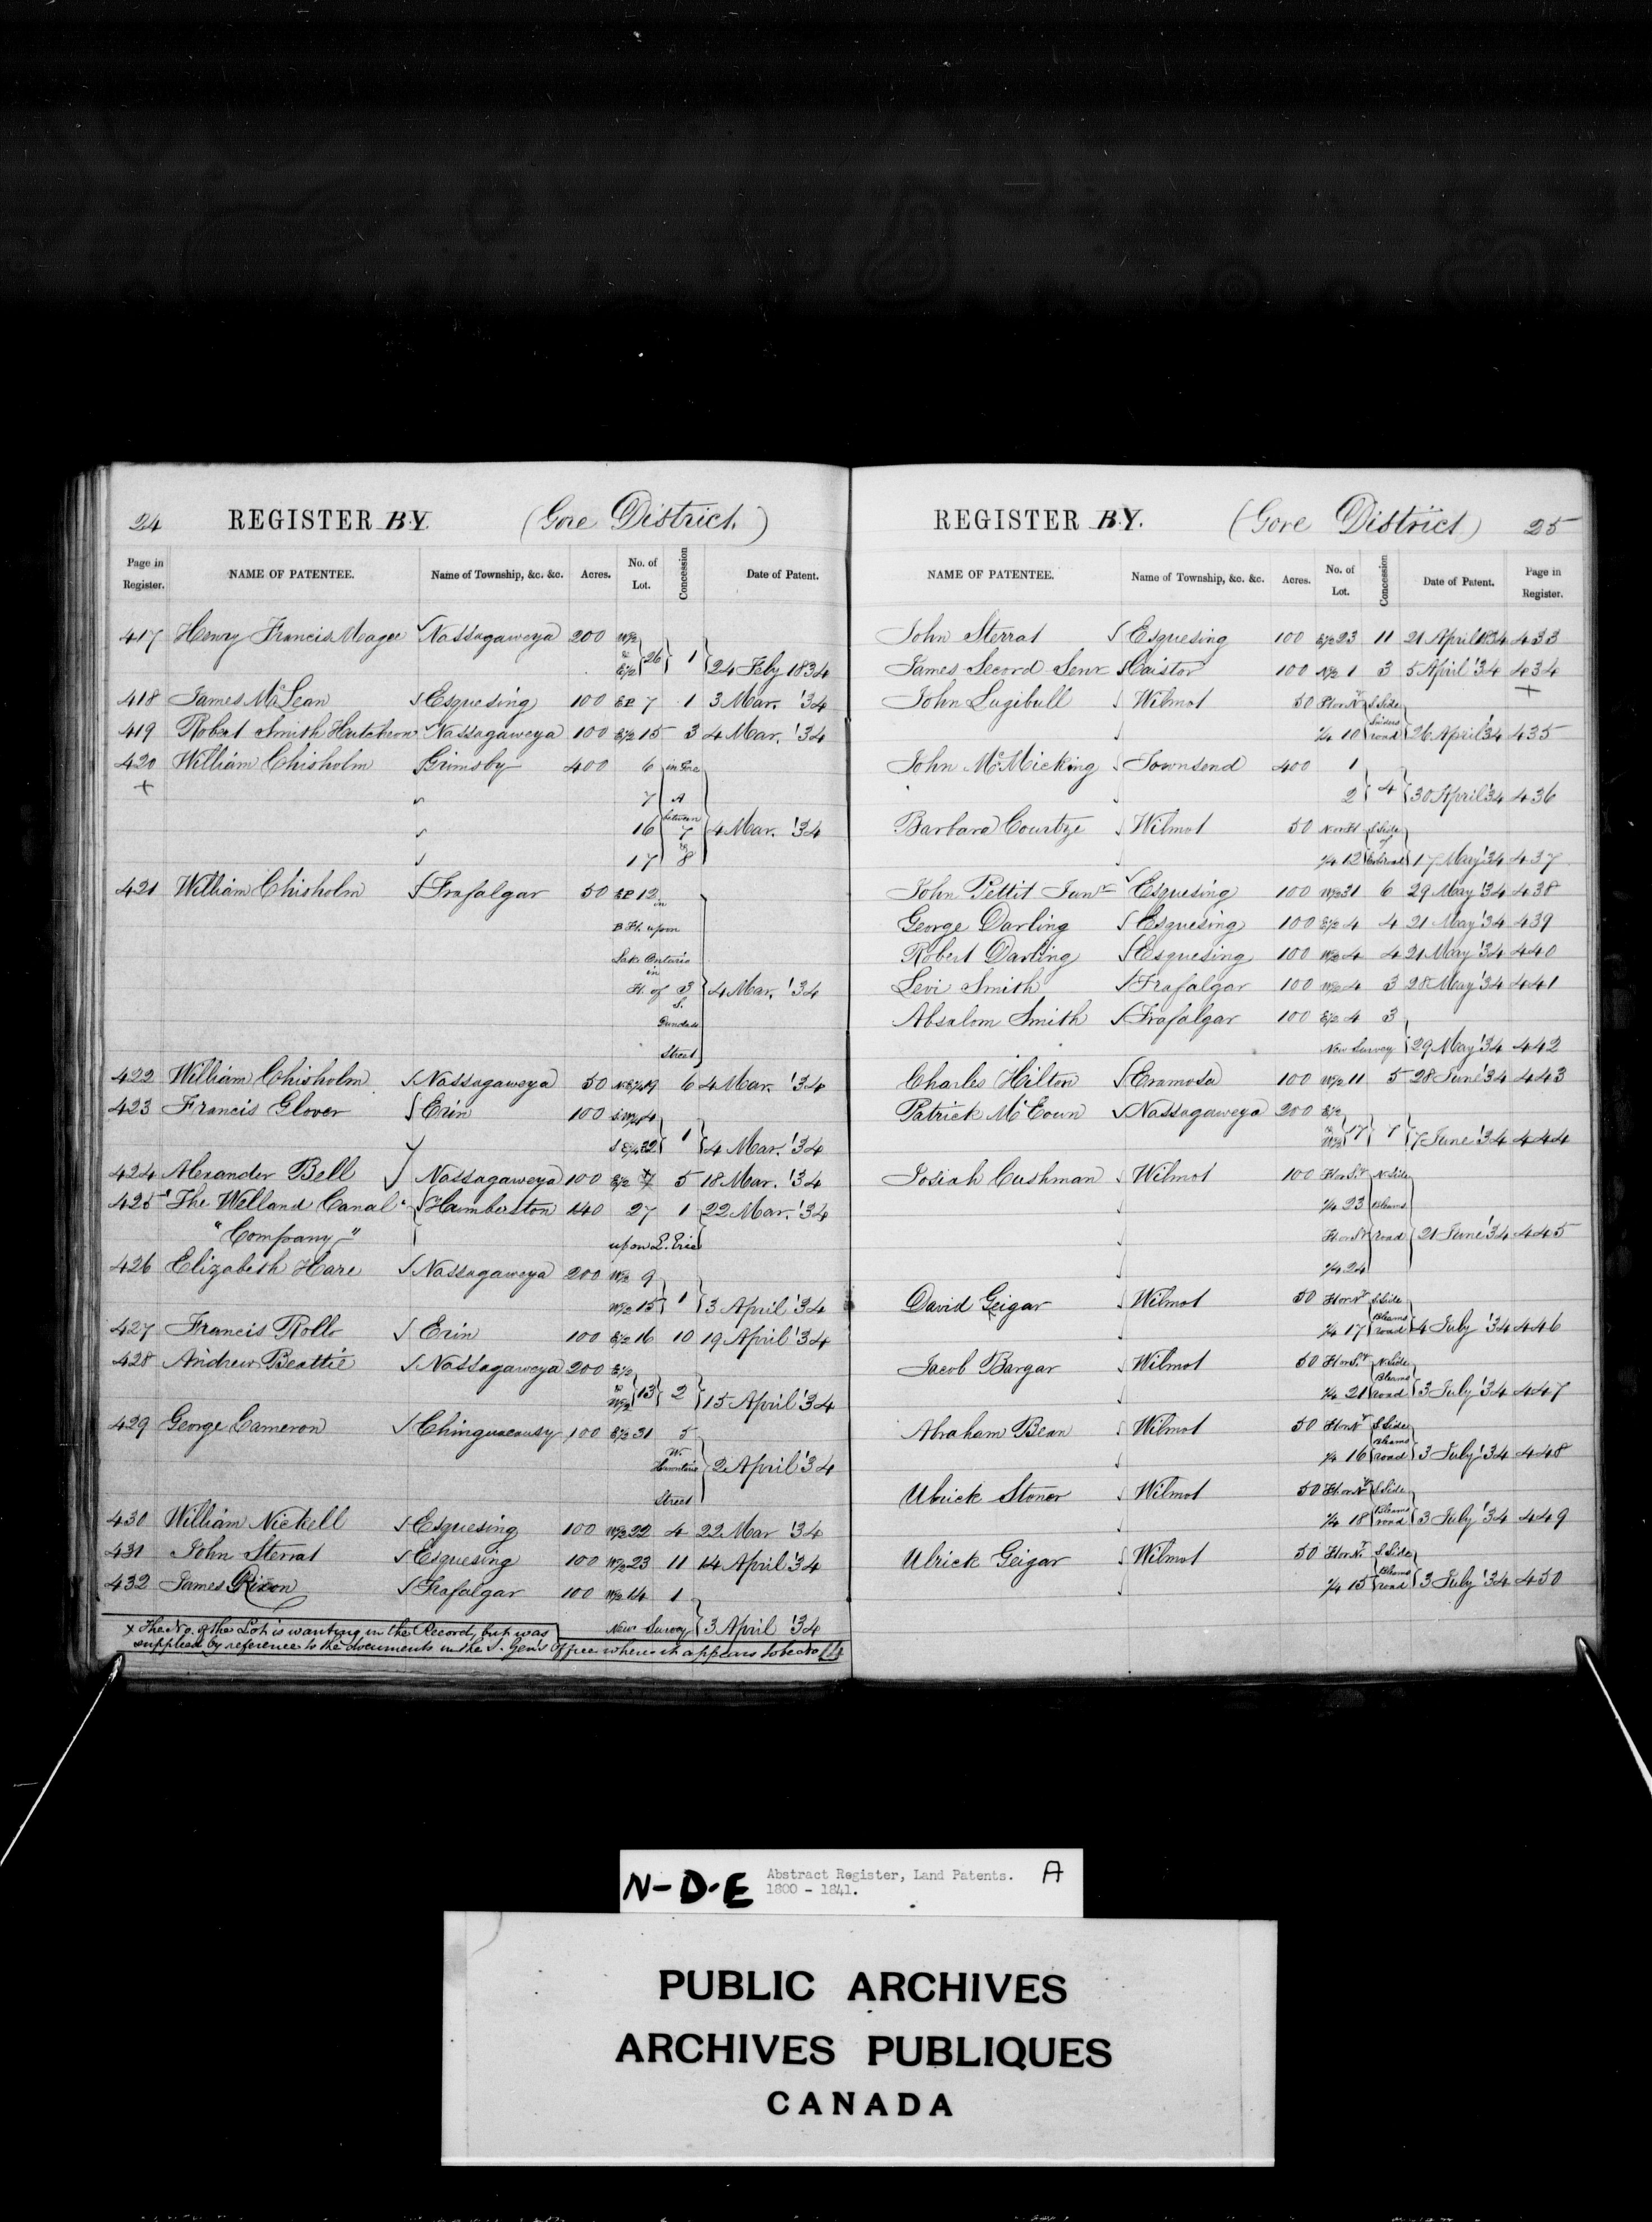 24 REGISTER B.Y. (Gore District.)
Page in Register. NAME OF PATENTEE. Name of Township, &c. &c. Acres. No. of Lot. Concession Date of Patent.
417 Henry Francis Meager Nassagaweya 200 W½
& E½ 26 1 24 Feby 1834
418 James McLean Esquesing 100 EP 7 1 3 Mar. '34
419 Robert Smith Hutchison Nassagaweya 100 E½ 15 3 4 Mar. '34
420 William Chisholm Grimsby 400 6 in Gore
+ " 7 A
" 16 between 7 4 Mar. '34
17 & 8
421 William Chisholm Trafalgar 50 EP 12 in
B Ft. upon
Lake Ontario
in
Ft. of 3 4 Mar. '34
S.
Dundas
Street
422 William Chisholm Nassagaweya 50 NE¼ 19 6 4 Mar. '34
423 Francis Glover Erin 100 SW¼ 4
SE¼ 32 1 4 Mar. '34
424 Alexander Bell Nassagaweya 100 E½ 7 5 18 Mar. '34
425 "The Welland Canal" Humberston 140 27 1 22 Mar. '34
"Company" upon L. Erie
426 Elizabeth Hare Nassagaweya 200 W½ 9
W½ 15 1 3 April '34
427 Francis Rollo Erin 100 E½ 16 10 19 April '34
428 Andrew Beattie Nassagaweya 200 E½
& W½ 13 2 15 April '34
429 George Cameron Chinguacousy 100 E½ 31 5
W. Hurontario 2 April '34
Street
430 William Nickell Esquesing 100 W½ 22 4 22 Mar '34
431 John Sterrat Esquesing 100 W½ 23 11 14 April '34
432 James Rixon Trafalgar 100 W½ 14 1
New Survey 3 April '34
x The No. of the Lot is wanting in the Record, but was
supplied by reference to the documents in the S. Gen's Office where it appears to be No 14
REGISTER B.Y. (Gore District) 25
NAME OF PATENTEE. Name of Township, &c. &c. Acres. No. of Lot. Concession Date of Patent. Page in Register.
John Sterrat Esquesing 100 E½ 23 11 21 April 1834 433
James Secord Senr Caistor 100 N½ 1 3 5 April '34 434
John Lugibull Wilmot 50 Pt or N S Side +
¼ 10 road 26 April '34 435
John McMicking Townsend 400 1
2 4 30 April '34 436
Barbara Courtze Wilmot 50 N or Ft S Side
of
¼ 12 17 May '34 437
John Pettit Junr Esquesing 100 W½ 31 6 29 May '34 438
George Darling Esquesing 100 E½ 4 4 21 May '34 439
Robert Darling Esquesing 100 W½ 4 4 21 May '34 440
Levi Smith Trafalgar 100 W½ 4 3 28 May '34 441
Absalom Smith Trafalgar 100 E½ 4 3
New Survey 29 May '34 442
Charles Hilton Eramosa 100 W½ 11 5 28 June '34 443
Patrick McEoun Nassagaweya 200 E½
& W½ 17 7 7 June '34 444
Josiah Cushman Wilmot 100 Ft or S N Side
¼ 23 Bleams
Ft or S road 21 June '34 445
¼ 24
David Geigar Wilmot 50 Ft or N S Side
¼ 17 Bleams road 4 July '34 446
Jacob Bargar Wilmot 50 Ft or S N Side
¼ 21 Bleams road 3 July '34 447
Abraham Bean Wilmot 50 Ft or N S Side
¼ 16 Bleams road 3 July '34 448
Ulrick Stoner Wilmot 50 Ft or N S Side
¼ 18 Bleams road 3 July '34 449
Ulrick Geigar Wilmot 50 Ft or N S Side
¼ 15 Bleams road 3 July '34 450
N-D-E Abstract Register, Land Patents. A
1800 - 1841.
PUBLIC ARCHIVES
ARCHIVES PUBLIQUES
CANADA